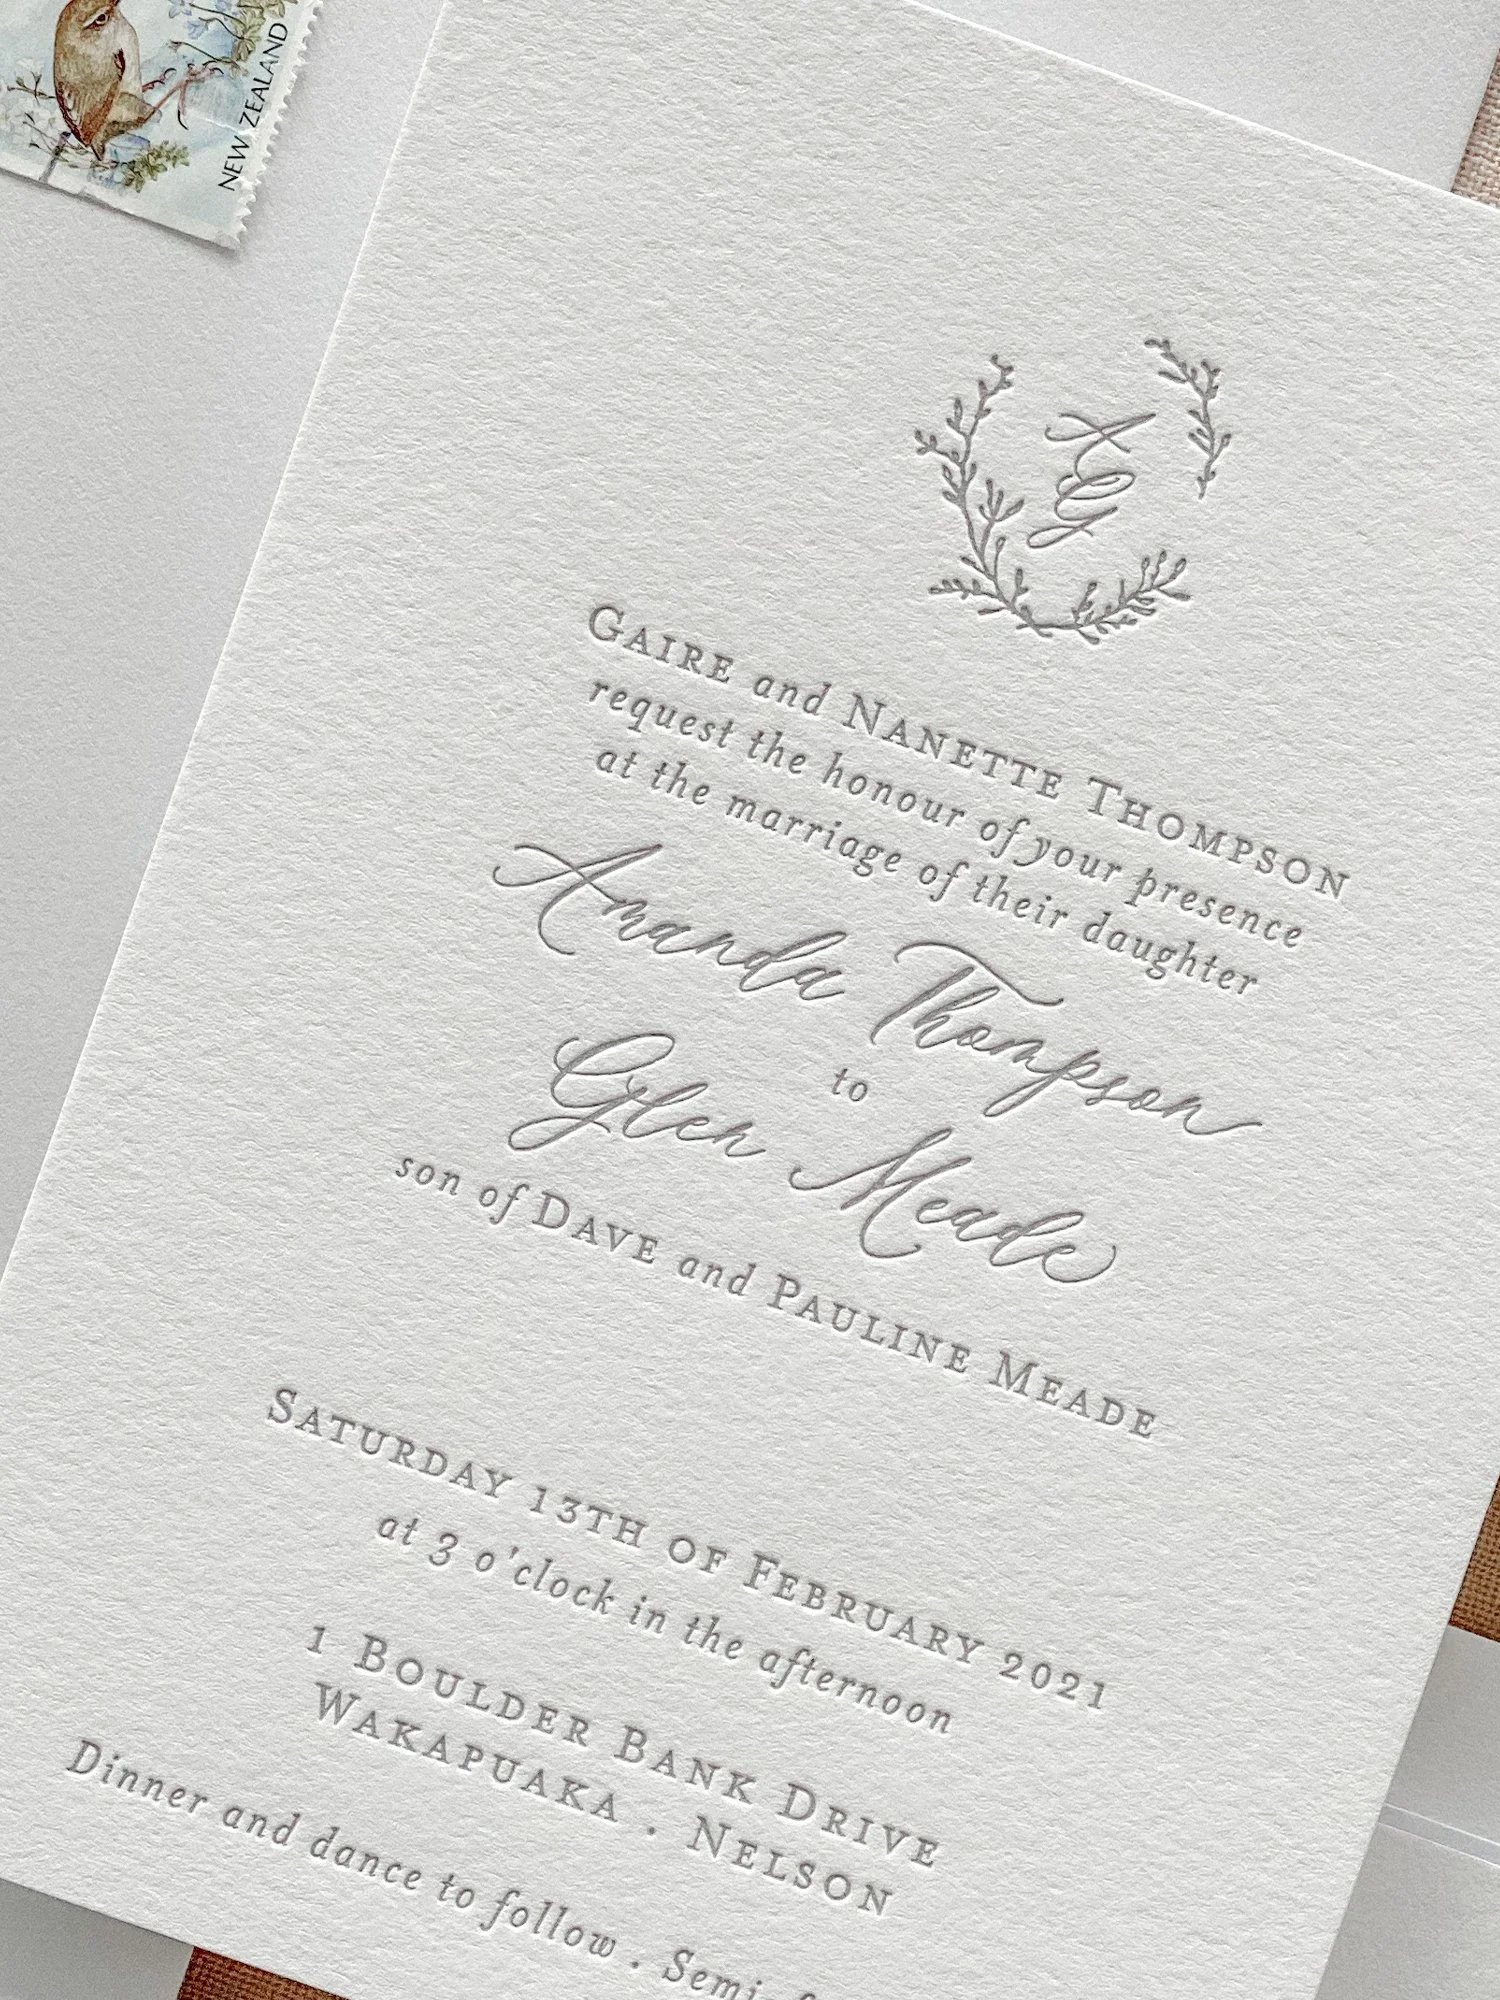 NEW ZEALAND
A
G
GAIRE and NANETTE THOMPSON
request the honour of your presence
at the marriage of their daughter
Amanda Thompson
to
Glen Meade
son of DAVE and PAULINE MEADE
SATURDAY 13TH OF FEBRUARY 2021
at 3 o'clock in the afternoon
1 BOULDER BANK DRIVE
WAKAPUAKA . NELSON
Dinner and dance to follow . Semi-